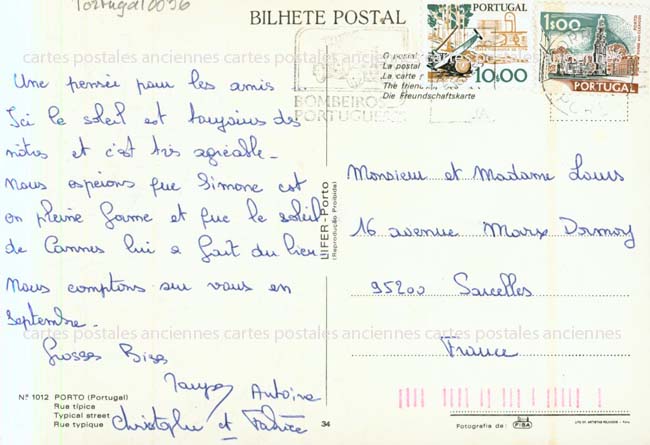 Portugal 0096
BILHETE POSTAL
PORTUGAL
10$00
1$00
PORTUGAL
O postal
La postal
La carte
The friend
Die Freundschaftskarte
BOMBEIROS
PORTUGUES
Une pensée pour les amis ...
Ici le soleil est toujours des
nôtres et c'est très agréable -
Nous espérons que Simone est
en pleine forme et que le soleil
de Cannes lui a fait du bien
Nous comptons sur vous en
septembre.
Grosses Bises
Antoine
Christophe et
Monsieur et Madame Louis
16 avenue Marx Dormoy
95200 Sarcelles
France
LIFER - Porto
(Reprodução Proibida)
cartes postales anciennes cartes postales anciennes cartes postales anciennes
cartes postales anciennes cartes postales anciennes cartes postales anciennes
Nº 1012 PORTO (Portugal)
Rua típica
Typical street
Rue typique
34
Fotografia de: